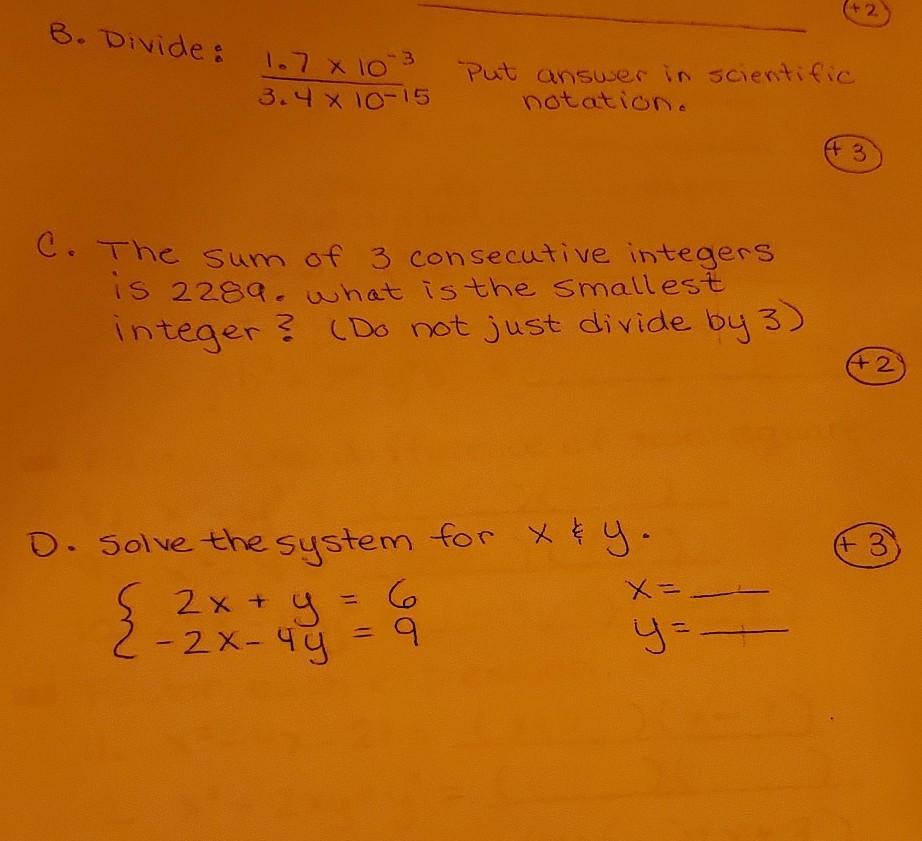 +2
B. Divide: 1.7 x 10⁻³ Put answer in scientific
3.4 x 10⁻¹⁵ notation.
+3
C. The sum of 3 consecutive integers
is 2289. What is the smallest
integer? (Do not just divide by 3)
+2
D. Solve the system for x & y. +3
{ 2x + y = 6 x = __
-2x - 4y = 9 y = __